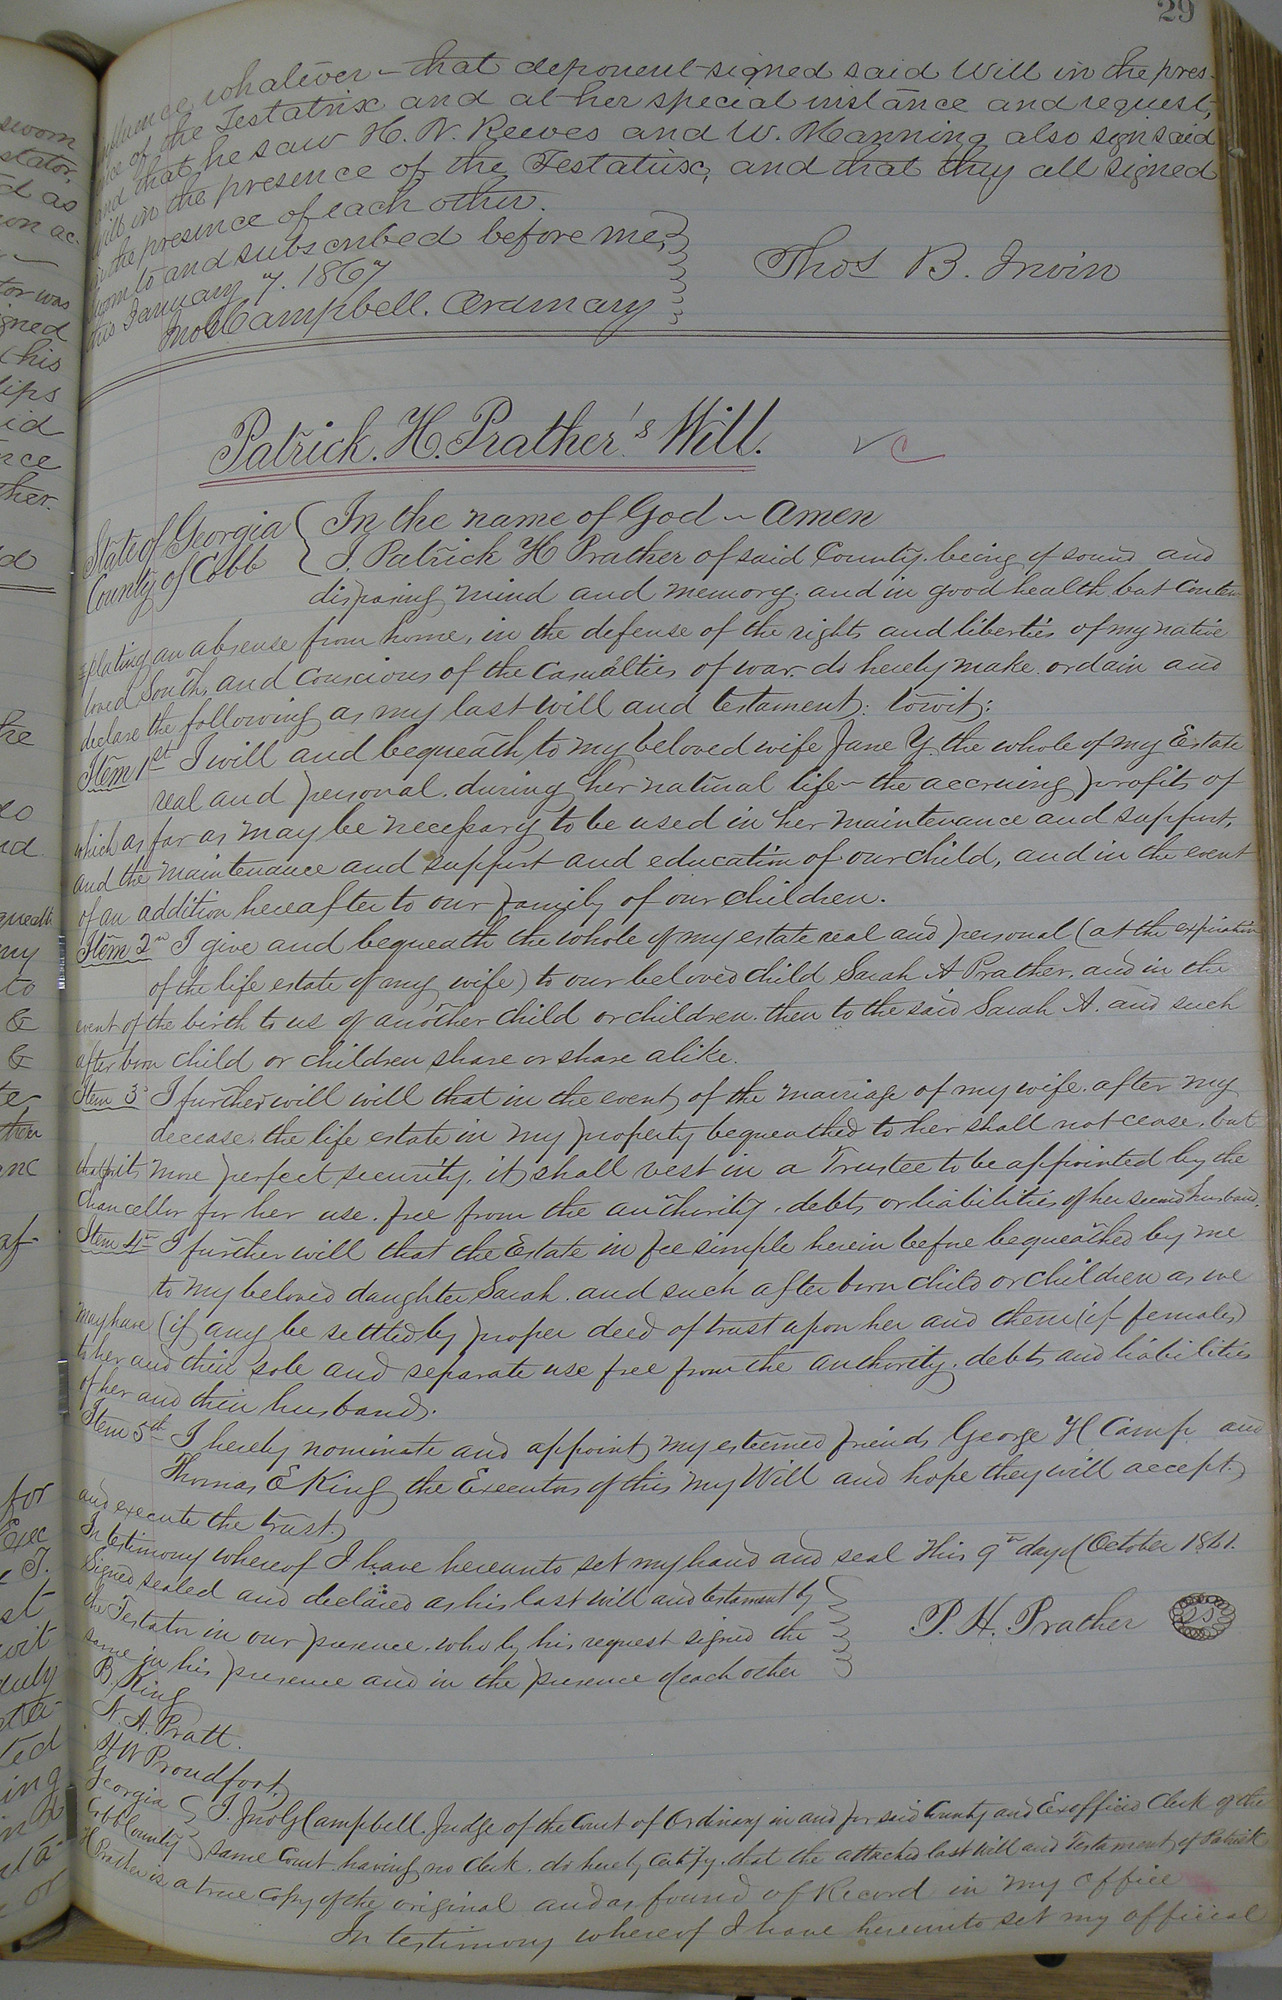 29
influence whatever – that deponent signed said Will in the pres-
ence of the Testatrix and at her special instance and request,
and that he saw H. N. Reeves and W. Manning also sign said
Will in the presence of the Testatrix, and that they all signed
in the presence of each other.
Sworn to and subscribed before me,
this January 7. 1867 Thos B. Irwin
Jno G Campbell. Ordinary
Patrick. H. Prather's Will.
State of Georgia In the name of God – Amen
County of Cobb I. Patrick H Prather of said County. being of sound and
disposing mind and memory. and in good health but contem
=plating an absense from home, in the defense of the rights and liberties of my native
loved South, and conscious of the casualties of war. do hereby make. ordain and
declare the following as my last will and testament: towit:
Item 1st I will and bequeath to my beloved wife Jane Y. the whole of my Estate
real and personal. during her natural life – the accruing profits of
which as far as may be necessary to be used in her maintenance and support,
and the maintenance and support and education of our child, and in the event
of an addition hereafter to our family of our children.
Item 2n I give and bequeath the whole of my estate real and personal (at the expiration
of the life estate of my wife) to our beloved child Sarah A Prather. and in the
event of the birth to us of another child or children. then to the said Sarah A. and such
after born child or children share or share alike.
Item 3d I further will will that in the event of the marriage of my wife. after my
decease. the life estate in my property bequeathed to her shall not cease. but
that for its more perfect security. it shall vest in a Trustee to be appointed by the
Chancellor for her use. free from the authority. debts or liabilities of her second husband.
Item 4th I further will that the Estate in fee simple herein before bequeathed by me
to my beloved daughter Sarah. and such after born child or children as we
may have (if any be settled by proper deed of trust upon her and them (if females)
to her and their sole and separate use free from the authority. debts and liabilities
of her and their husbands.
Item 5th I hereby nominate and appoint my esteemed friends George H Camp and
Thomas E King the Executors of this my Will and hope they will accept
and execute the trust.
In testimony whereof I have hereunto set my hand and seal this 9th day of October 1861.
Signed sealed and declared as his last will and testament by
the Testator in our presence. who by his request signed the P. H. Prather LS
same in his presence and in the presence of each other
B. King
N. A. Pratt.
H W Proudfoot
Georgia I. Jno G Campbell. Judge of the Court of Ordinary in and for said County and Exofficio Clerk of the
Cobb County same Court having no clerk. do hereby certify. that the attached last Will and Testament of Patrick
H Prather is a true copy of the original and as found of Record in my office
In testimony whereof I have hereunto set my official